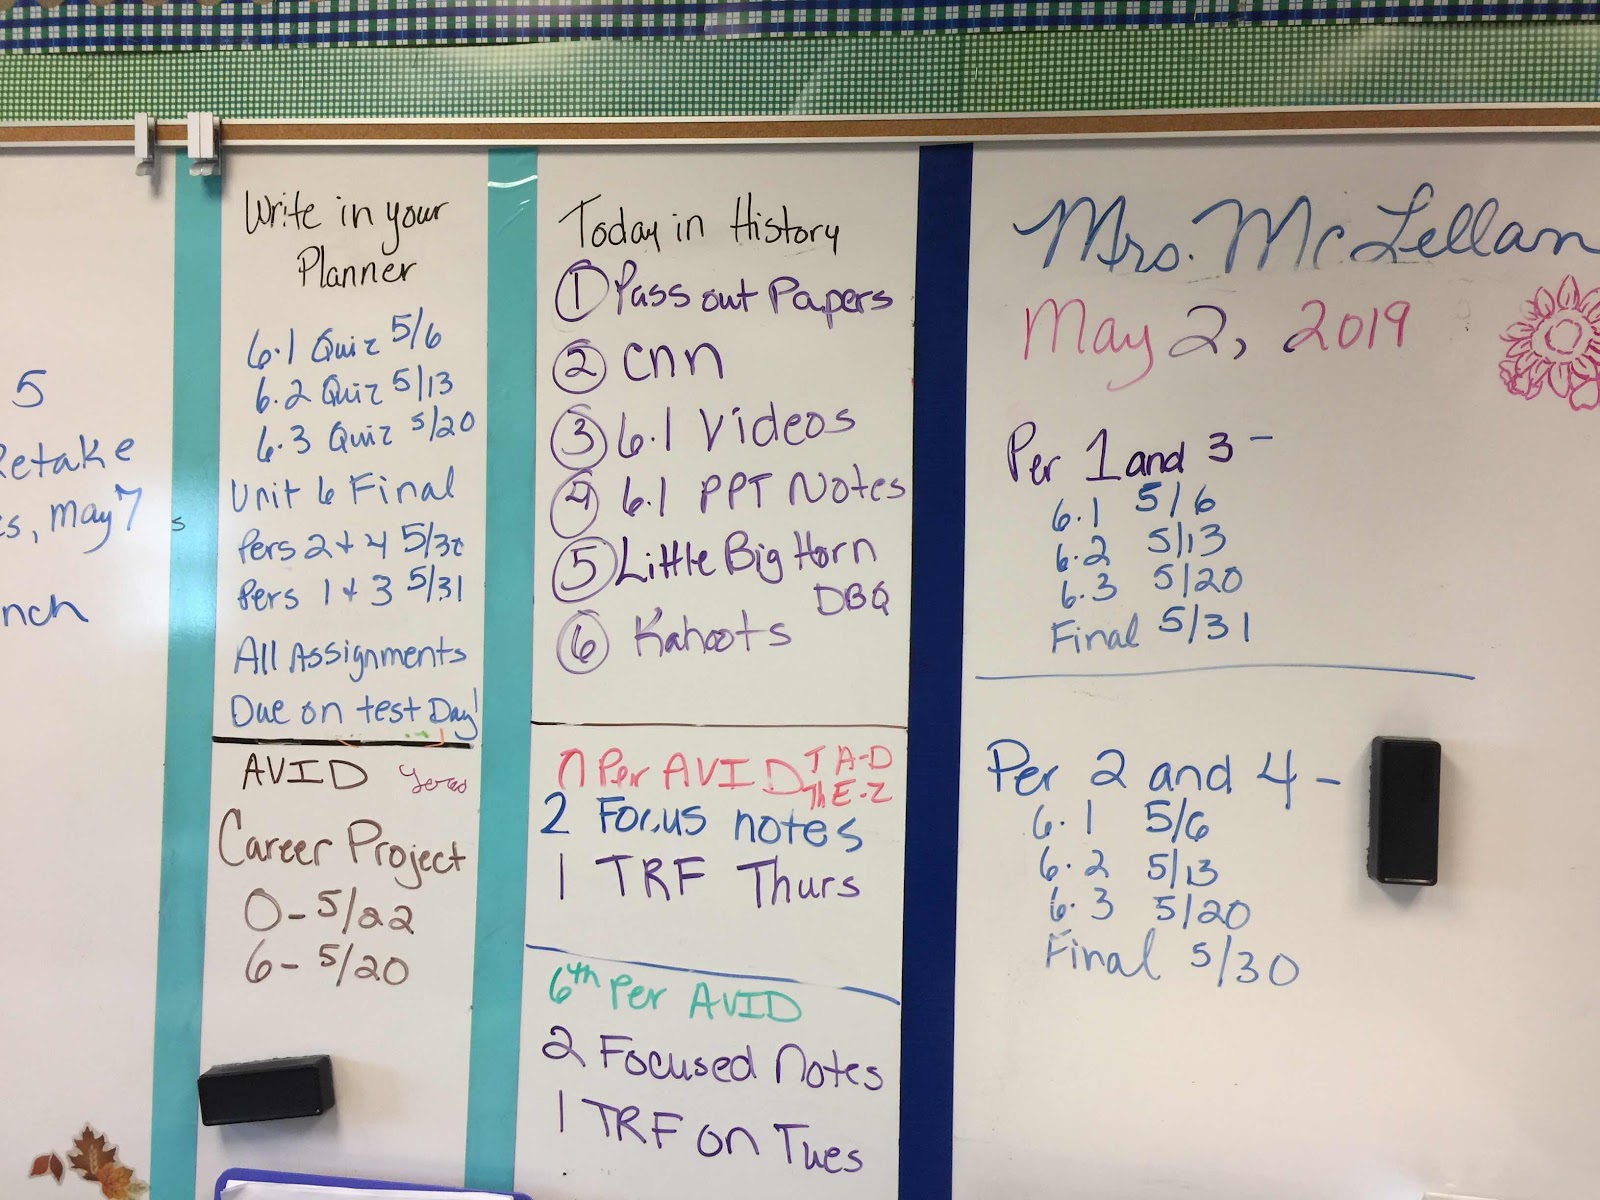 5
Retake
May 7
s
Write in your
Planner
6.1 Quiz 5/6
6.2 Quiz 5/13
6.3 Quiz 5/20
Unit 6 Final
Pers 2 + 4 5/30
Pers 1 + 3 5/31
All Assignments
Due on test Day!
AVID
Career Project
0 - 5/22
6 - 5/20
Today in History
① Pass out Papers
② cnn
③ 6.1 Videos
④ 6.1 PPT Notes
⑤ Little Big Horn
DBQ
⑥ Kahoots
Per AVID T A-D
Th E-Z
2 Focus notes
1 TRF Thurs
6th Per AVID
2 Focused Notes
1 TRF on Tues
Mrs. McLellan
May 2, 2019
Per 1 and 3 -
6.1 5/6
6.2 5/13
6.3 5/20
Final 5/31
Per 2 and 4 -
6.1 5/6
6.2 5/13
6.3 5/20
Final 5/30